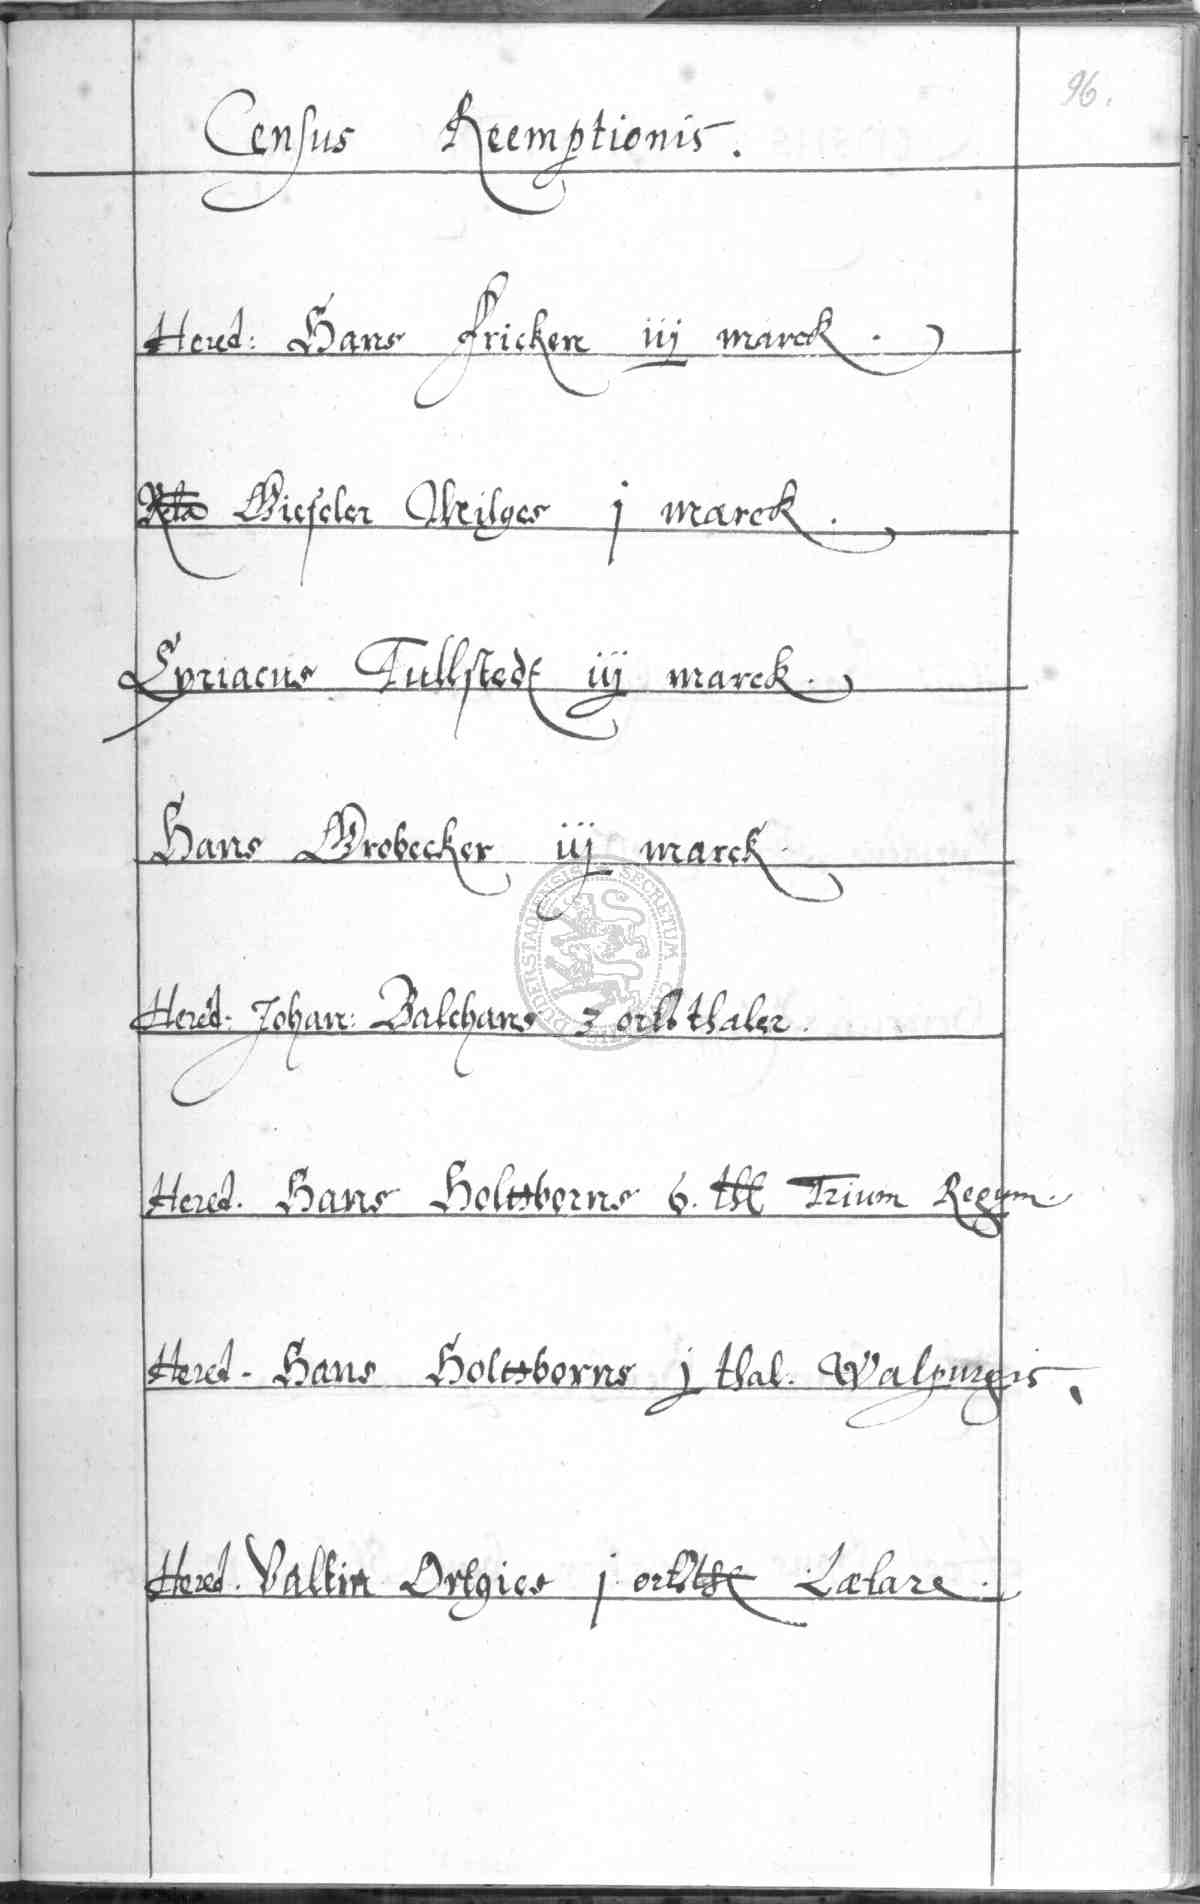 96.
Census Reemptionis.
Hered: Hans Fricken iij marck.
Rela Gieseler Milges j marck.
Cyriacus Tullstedt iij marck.
Hans Grobecker iij marck.
Hered. Johan: Balthans 3 orts thaler.
Hered. Hans Holtzborns 6. thl Trium Regum.
Hered. Hans Holtzborns j thal. Walpurgis.
Hered. Valtin Ortgies j ortsthl Lætare.
DUDERSTADIENSIS SECRETUM